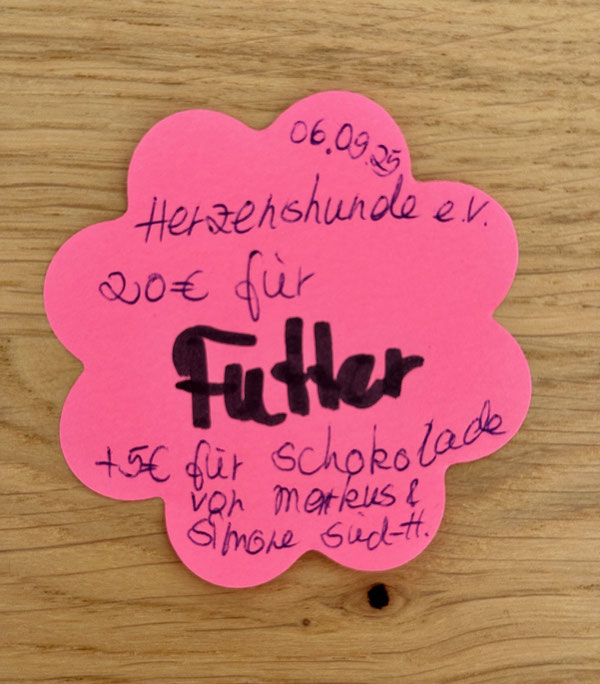 06.09.25
Herzenshunde e.V.
20€ für
Futter
+5€ für Schokolade
von Markus &
Simone Süd-H.